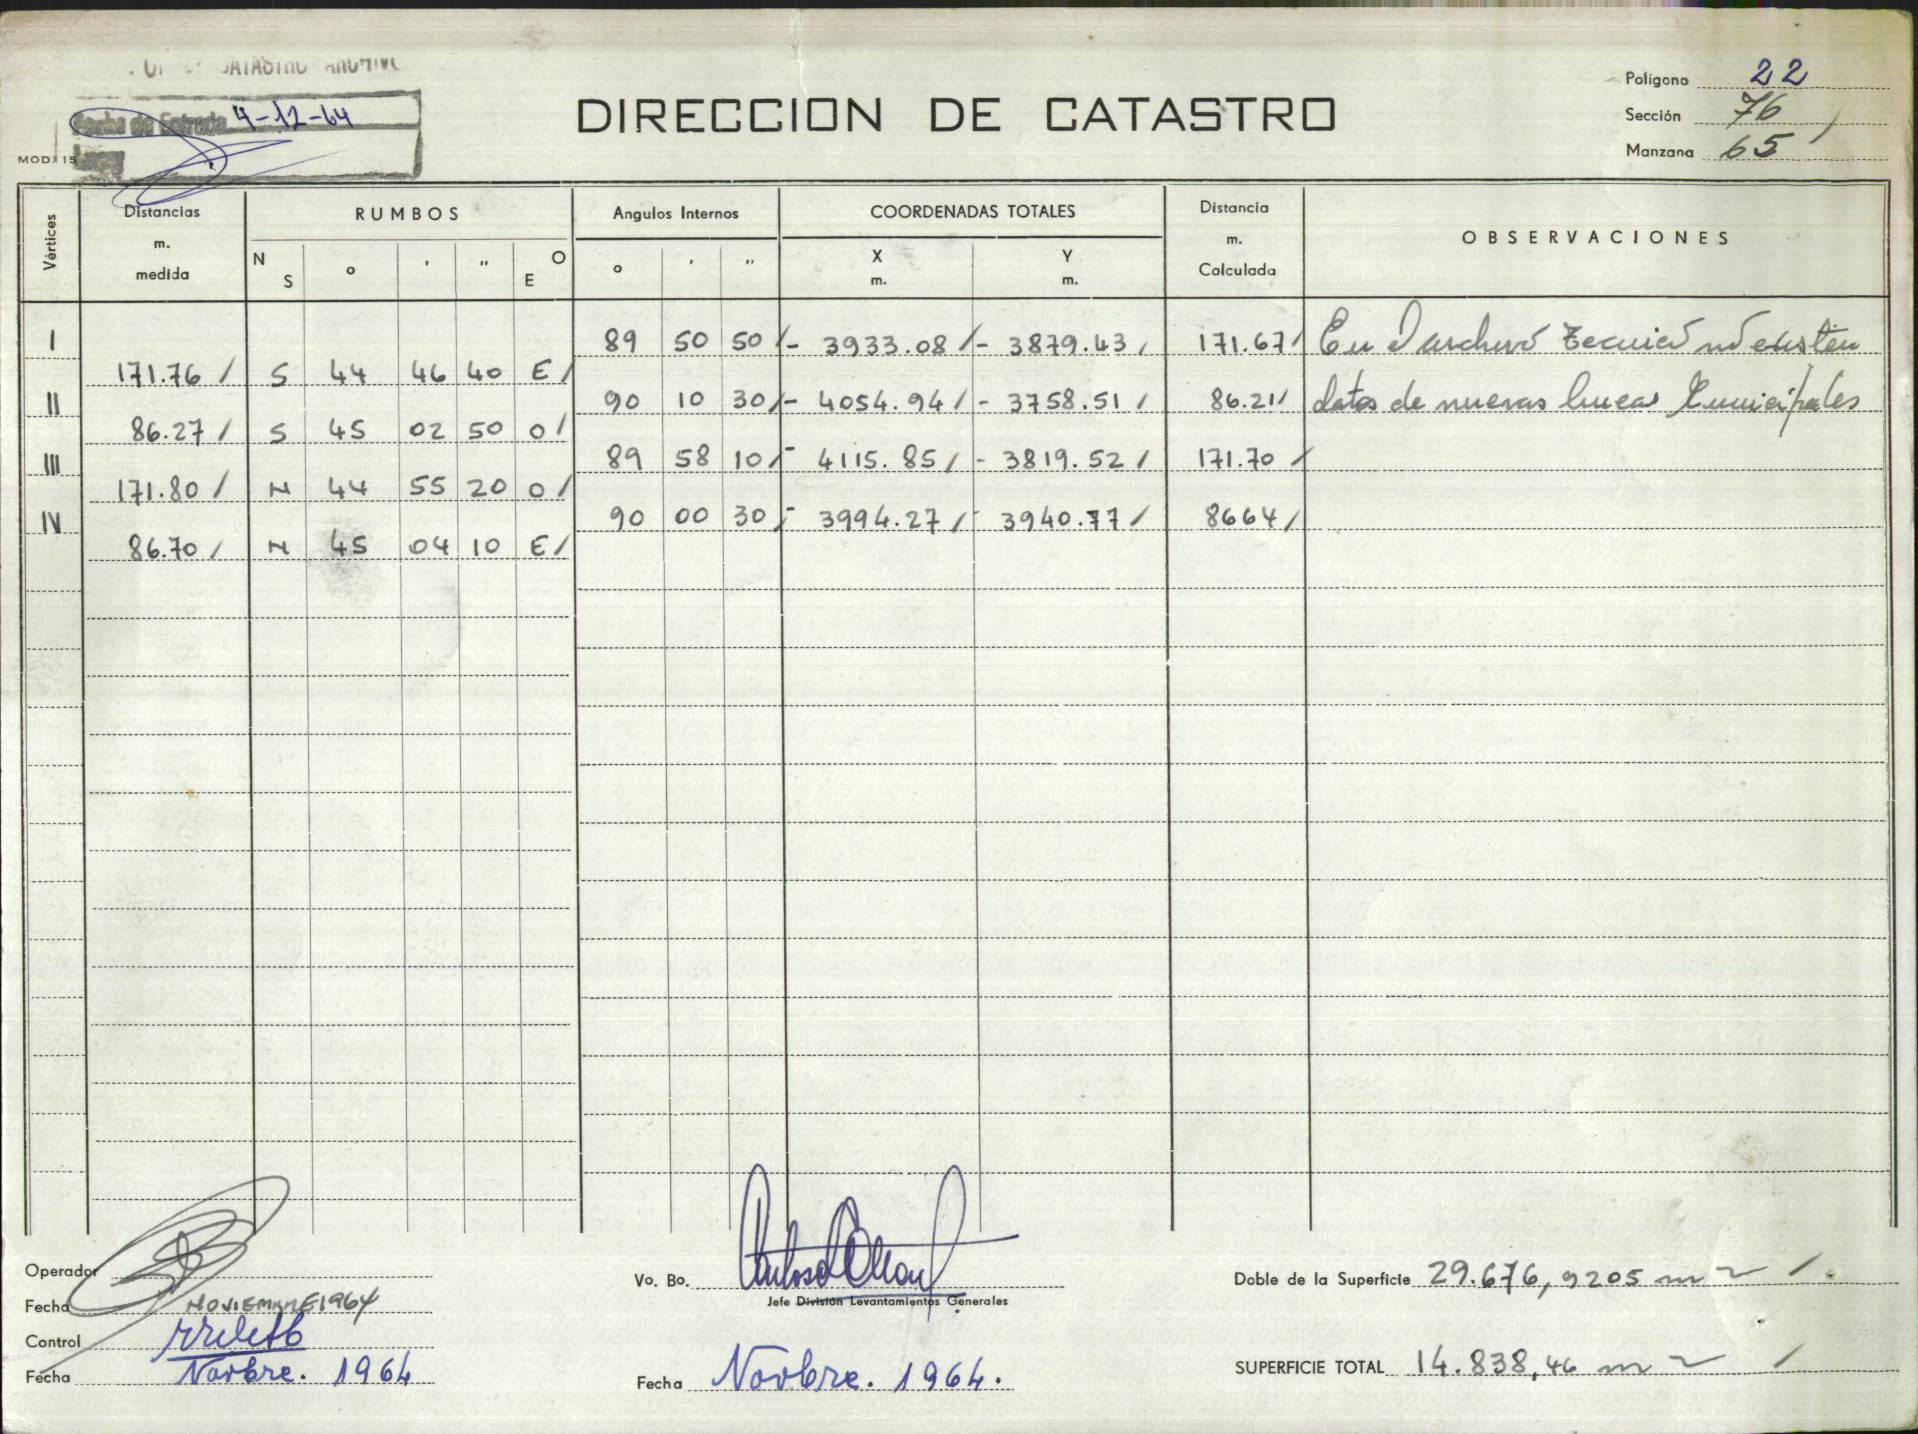 CATASTRO ARCHIVO
Fecha de Entrada 4-12-64
MOD. 15
DIRECCION DE CATASTRO
Polígono 22
Sección 76
Manzana 65
Vértices
Distancias m. medida
RUMBOS
N S o ' " O E
Angulos Internos
o ' "
COORDENADAS TOTALES
X m. Y m.
Distancia m. Calculada
OBSERVACIONES
I 89 50 50 - 3933.08 - 3879.43 171.67 En archivo tecnico no existen
171.76 S 44 46 40 E
II 90 10 30 - 4054.94 - 3758.51 86.21 datos de nuevas lineas Municipales
86.27 S 45 02 50 O
III 89 58 10 - 4115.85 - 3819.52 171.70
171.80 N 44 55 20 O
IV 90 00 30 - 3994.27 - 3940.77 8664
86.70 N 45 04 10 E
Operador
Fecha NOVIEMBRE 1964
Control
Fecha Novbre. 1964
Vo. Bo.
Jefe División Levantamientos Generales
Fecha Novbre. 1964.
Doble de la Superficie 29.676,9205 m2
SUPERFICIE TOTAL 14.838,46 m2